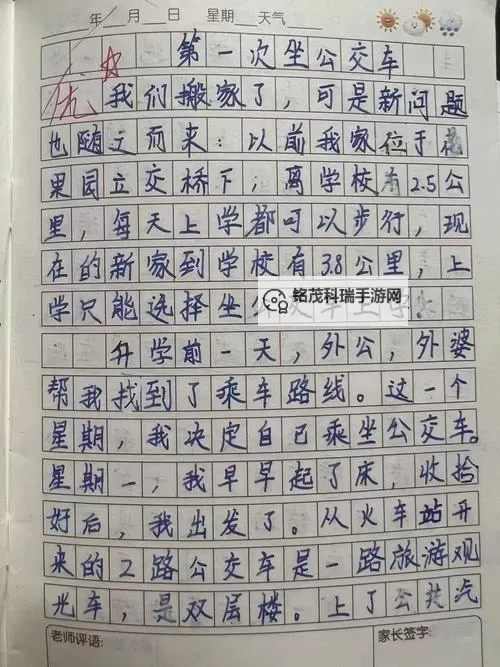 年 月 日 星期 天气
第一次坐公交车
优 我们搬家了，可是新问题
也随之而来：以前我家位于花
果园立交桥下，离学校有2.5公
里，每天上学都可以步行，现
在的新家到学校有3.8公里，上
学只能选择坐公交车上学。
铭茂科瑞手游网
升学前一天，外公，外婆
帮我找到了乘车路线。这一个
星期，我决定自己乘坐公交车。
星期一，我早早起了床，收拾
好后，我出发了。从火车站开
来的2路公交车是一路旅游观
光车，是双层楼。上了公共汽
老师评语： 家长签字：